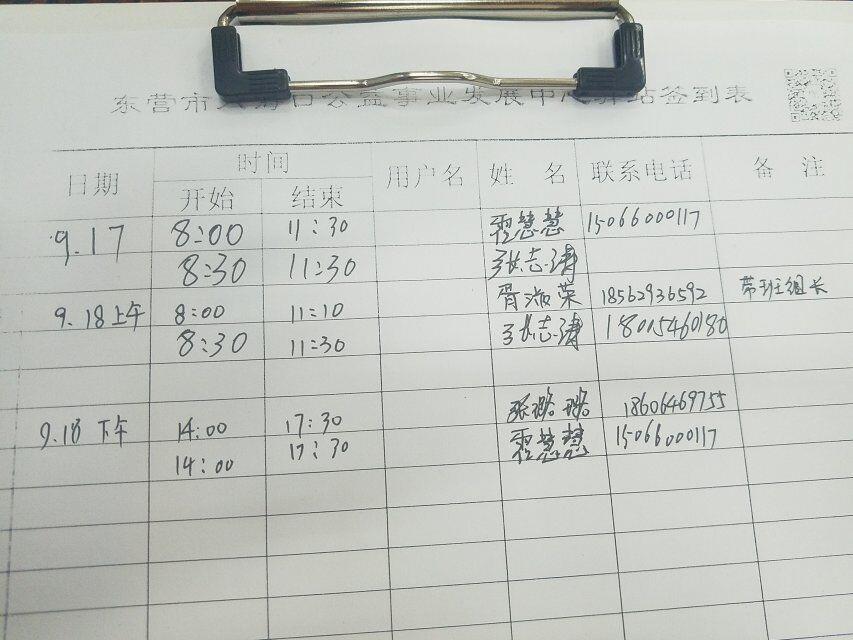 东营市 口公益事业发展中心 站签到表
日期 时间 用户名 姓 名 联系电话 备 注
开始 结束
9.17 8:00 11:30 慧慧 15066000117
8:30 11:30 张志涛
9.18上午 8:00 11:10 胥淑荣 18562936592 带班组长
8:30 11:30 张志涛 18015460180
9.18 下午 14:00 17:30 张璐璐 18606469755
14:00 17:30 慧慧 15066000117